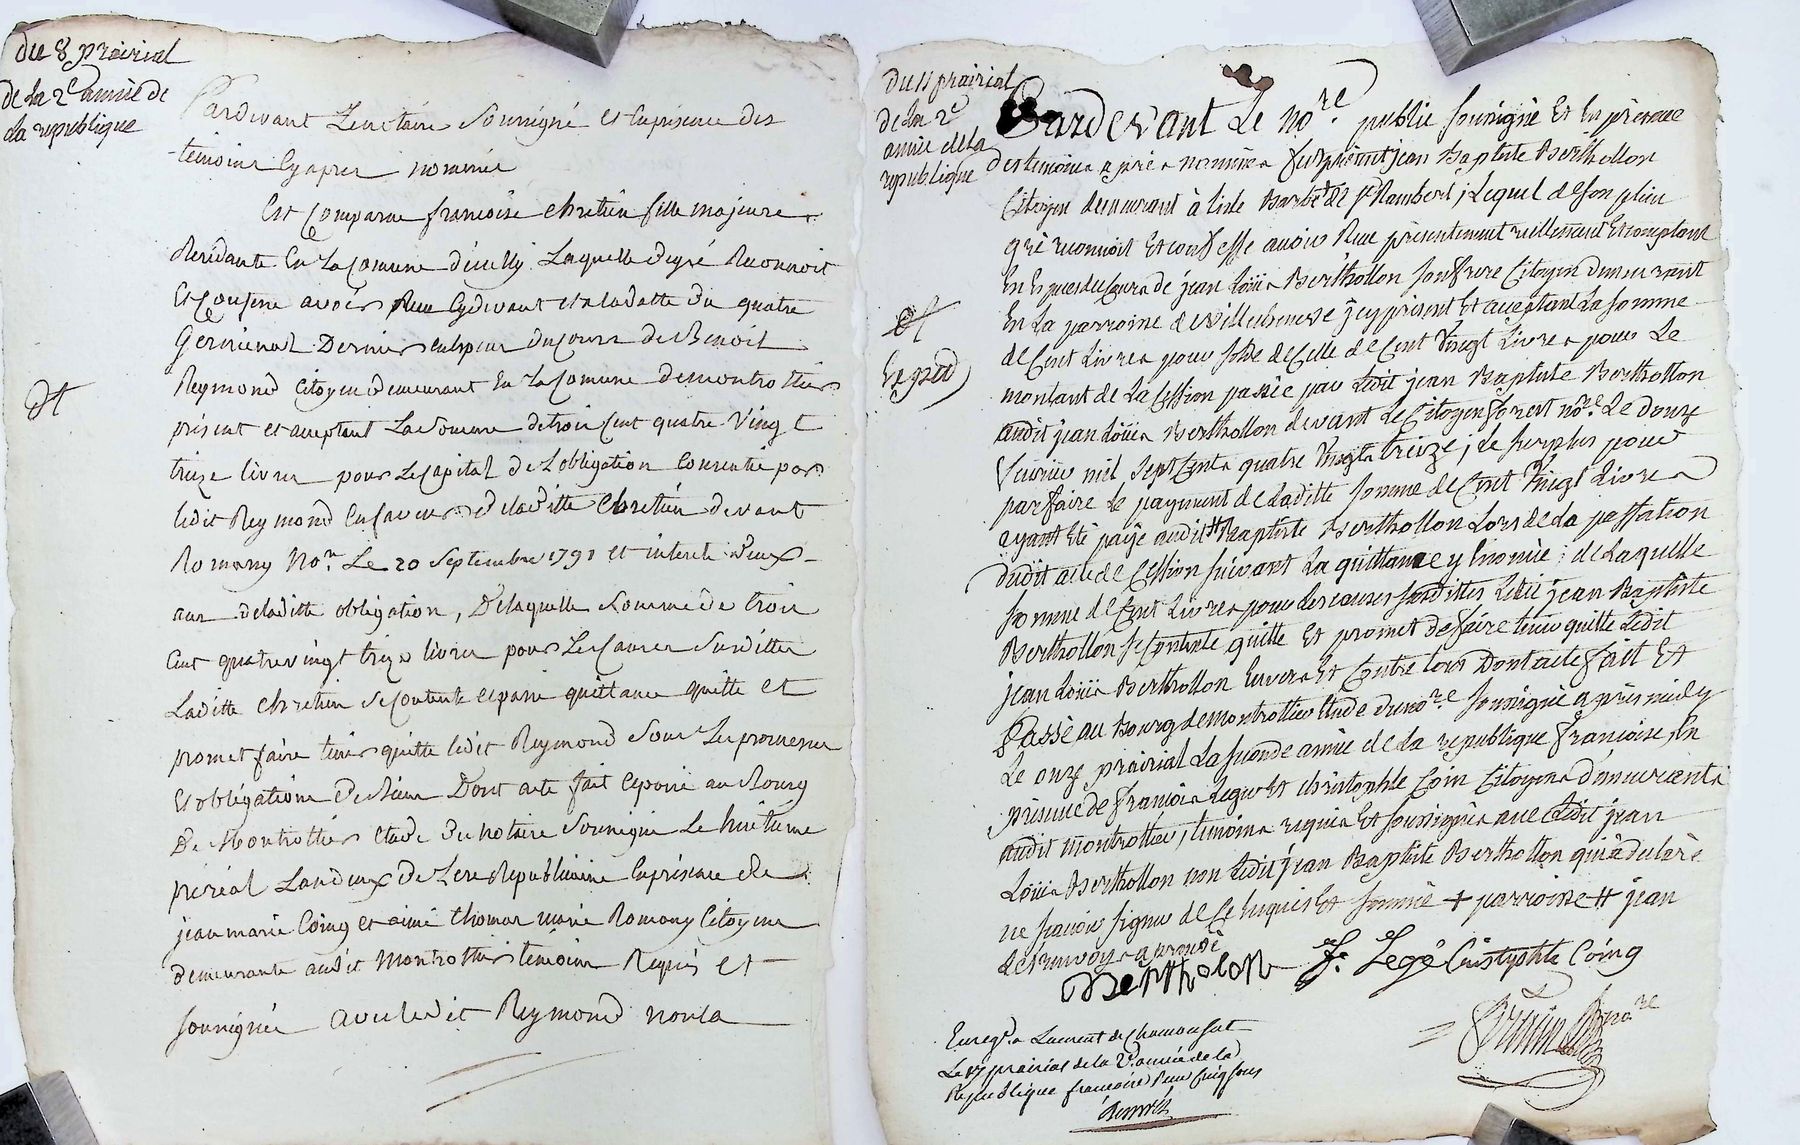 du 8 prairial
de la 2e année de
la republique
Pardevant Le notaire Soussigné et En presence des
temoins Cy apres nommés
Est Comparue francoise chretien fille majeure
Residante En La Comune d'ecully Laquelle de gré Reconnoit
et Confesse avoir Reçu Cydevant et a la datte du quatre
Germinal Dernier du Cours de Benoit
Reymond Citoyen demeurant En La Comune de montrottier
présent et acceptant La Somme de trois Cent quatre Vingt
treize livres pour Le Capital de L'obligation Consentie par
ledit Reymond En faveur de laditte Chretien devant
Romany Nore. Le 20 Septembre 1791 et interets d'eux
aux de laditte obligation, De laquelle Somme de trois
Cent quatre vingt treize livres pour Les Causes Surdittes
Laditte chretien Se Contente quittance quitte et
promet faire tenir quitte ledit Reymond Sous Les promesses
et obligations de Dont acte fait et passé au Bourg
De Montrottier etude du notaire Soussigné Le huitieme
L'an deux De L'ere Republicaine En présence de
jean marie Coing et aimé thomas marie Romany Citoyens
demeurants audit Montrottier témoins Requis et
soussignés avec ledit Reymond non la
du 11 prairial
de la 2e
année de la
republique
Expédé
Pardevant Le nore. public soussigné Et En présence
des temoins après nommés fut présent jean Baptiste Berthollon
Citoyen demeurant à l'isle Barbe de St Rambert, Lequel de son plein
gré reconnoit Et confesse avoir Reçu présentement réellement Et comptant
En Especes du Cours de jean Loüis Berthollon son frere Citoyen demeurant
En La parroisse de Villechenève jcy présent Et acceptant La somme
de Cent Livres pour solde de Celle de Cent Vingt Livres pour Le
montant de La Cession passée par Ledit jean Baptiste Berthollon
audit jean Loüis Berthollon devant Le Citoyen forest nore. Le douze
fevrier mil Sept Cents quatre Vingts treize; Le surplus pour
parfaire le payement de Laditte somme de Cent Vingt Livres
ayant Eté payé audit # Baptiste Berthollon Lors de La passation
dudit acte de Cession suivant La quittance y Enoncée; de Laquelle
somme de Cent Livres pour Les causes susdittes Ledit jean Baptiste
Berthollon Se Contente quitte Et promet de faire tenir quitte Ledit
jean Loüis Berthollon Envers Et Contre tous Dont acte fait Et
Passé au Bourg de montrottier Etude du nore. soussigné après midy
Le onze prairial La seconde année de La republique francoise, En
présence de francois Leger Et christophle Coin Citoyens demeurants
audit montrottier, temoins requis Et soussignés avec Ledit jean
Loüis Berthollon non Ledit jean Baptiste Berthollon qui a déclaré
ne savoir signer de Ce Enquis Et sommé + parroisse # jean
les renvoys approuvé
Bertholon F. Legé Cristophle Coing
nore
Enregé. a Laurent de Chamousset
Le 17 prairial de la 2e. année de la
Republique francoise Reçu Cinq sous